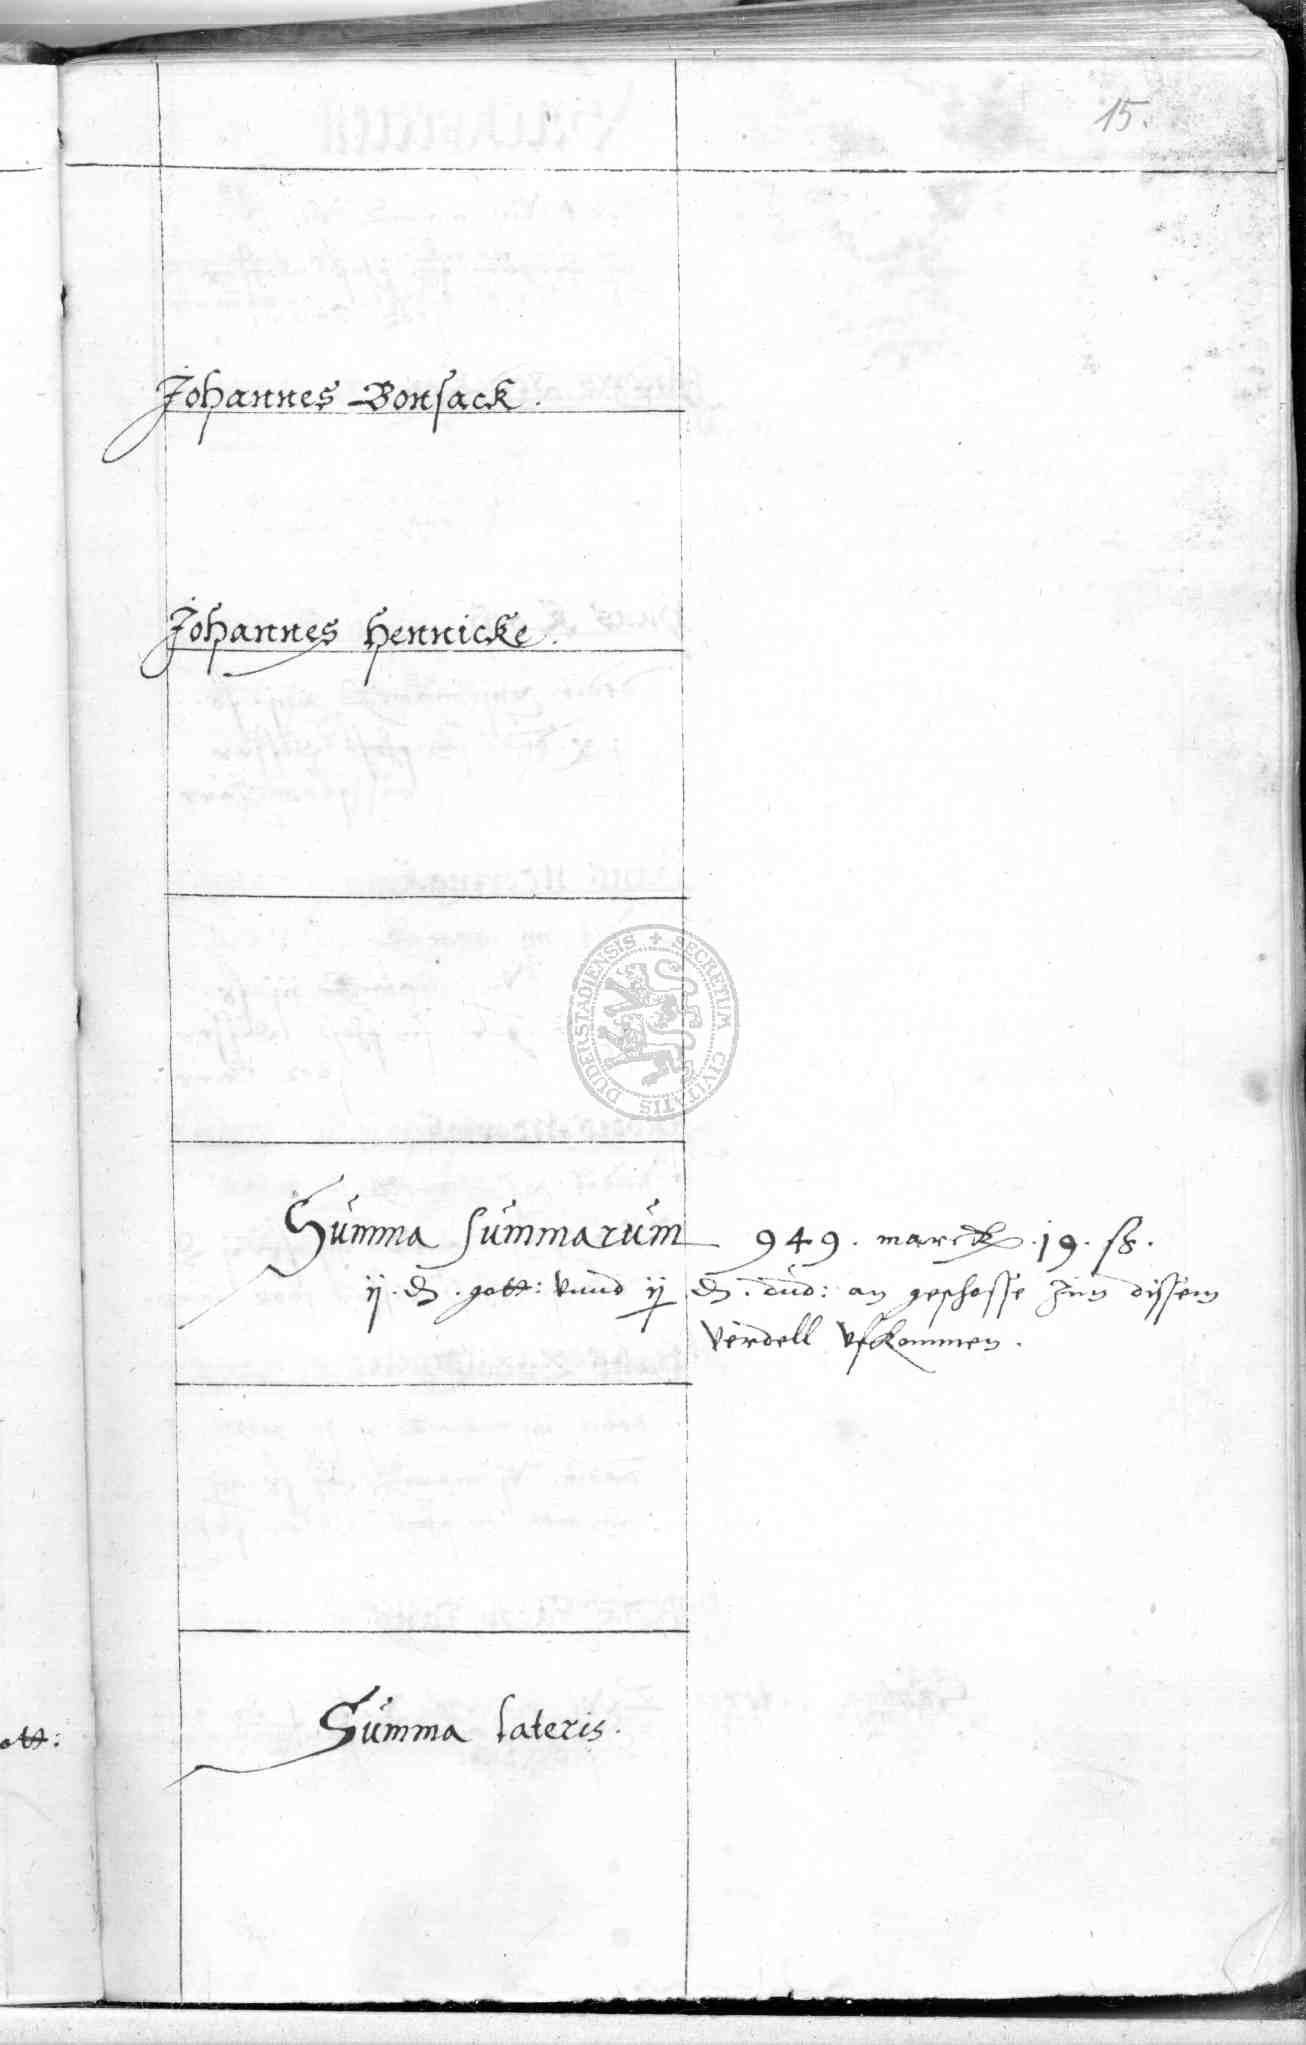 15.
Johannes Bonsack.
Johannes Hennicke.
DUDERSTADIENSIS + SECRETUM CIVITATIS
Summa summarum 949. marck .19. ß.
ij. d. gott: vnnd ij d. dud: an geschosse Inn dissem
verdell vfkommen.
Summa lateris.
ott: